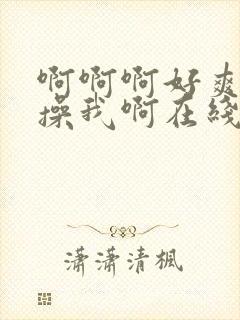 啊啊啊好爽
操我啊在线
潇潇清枫